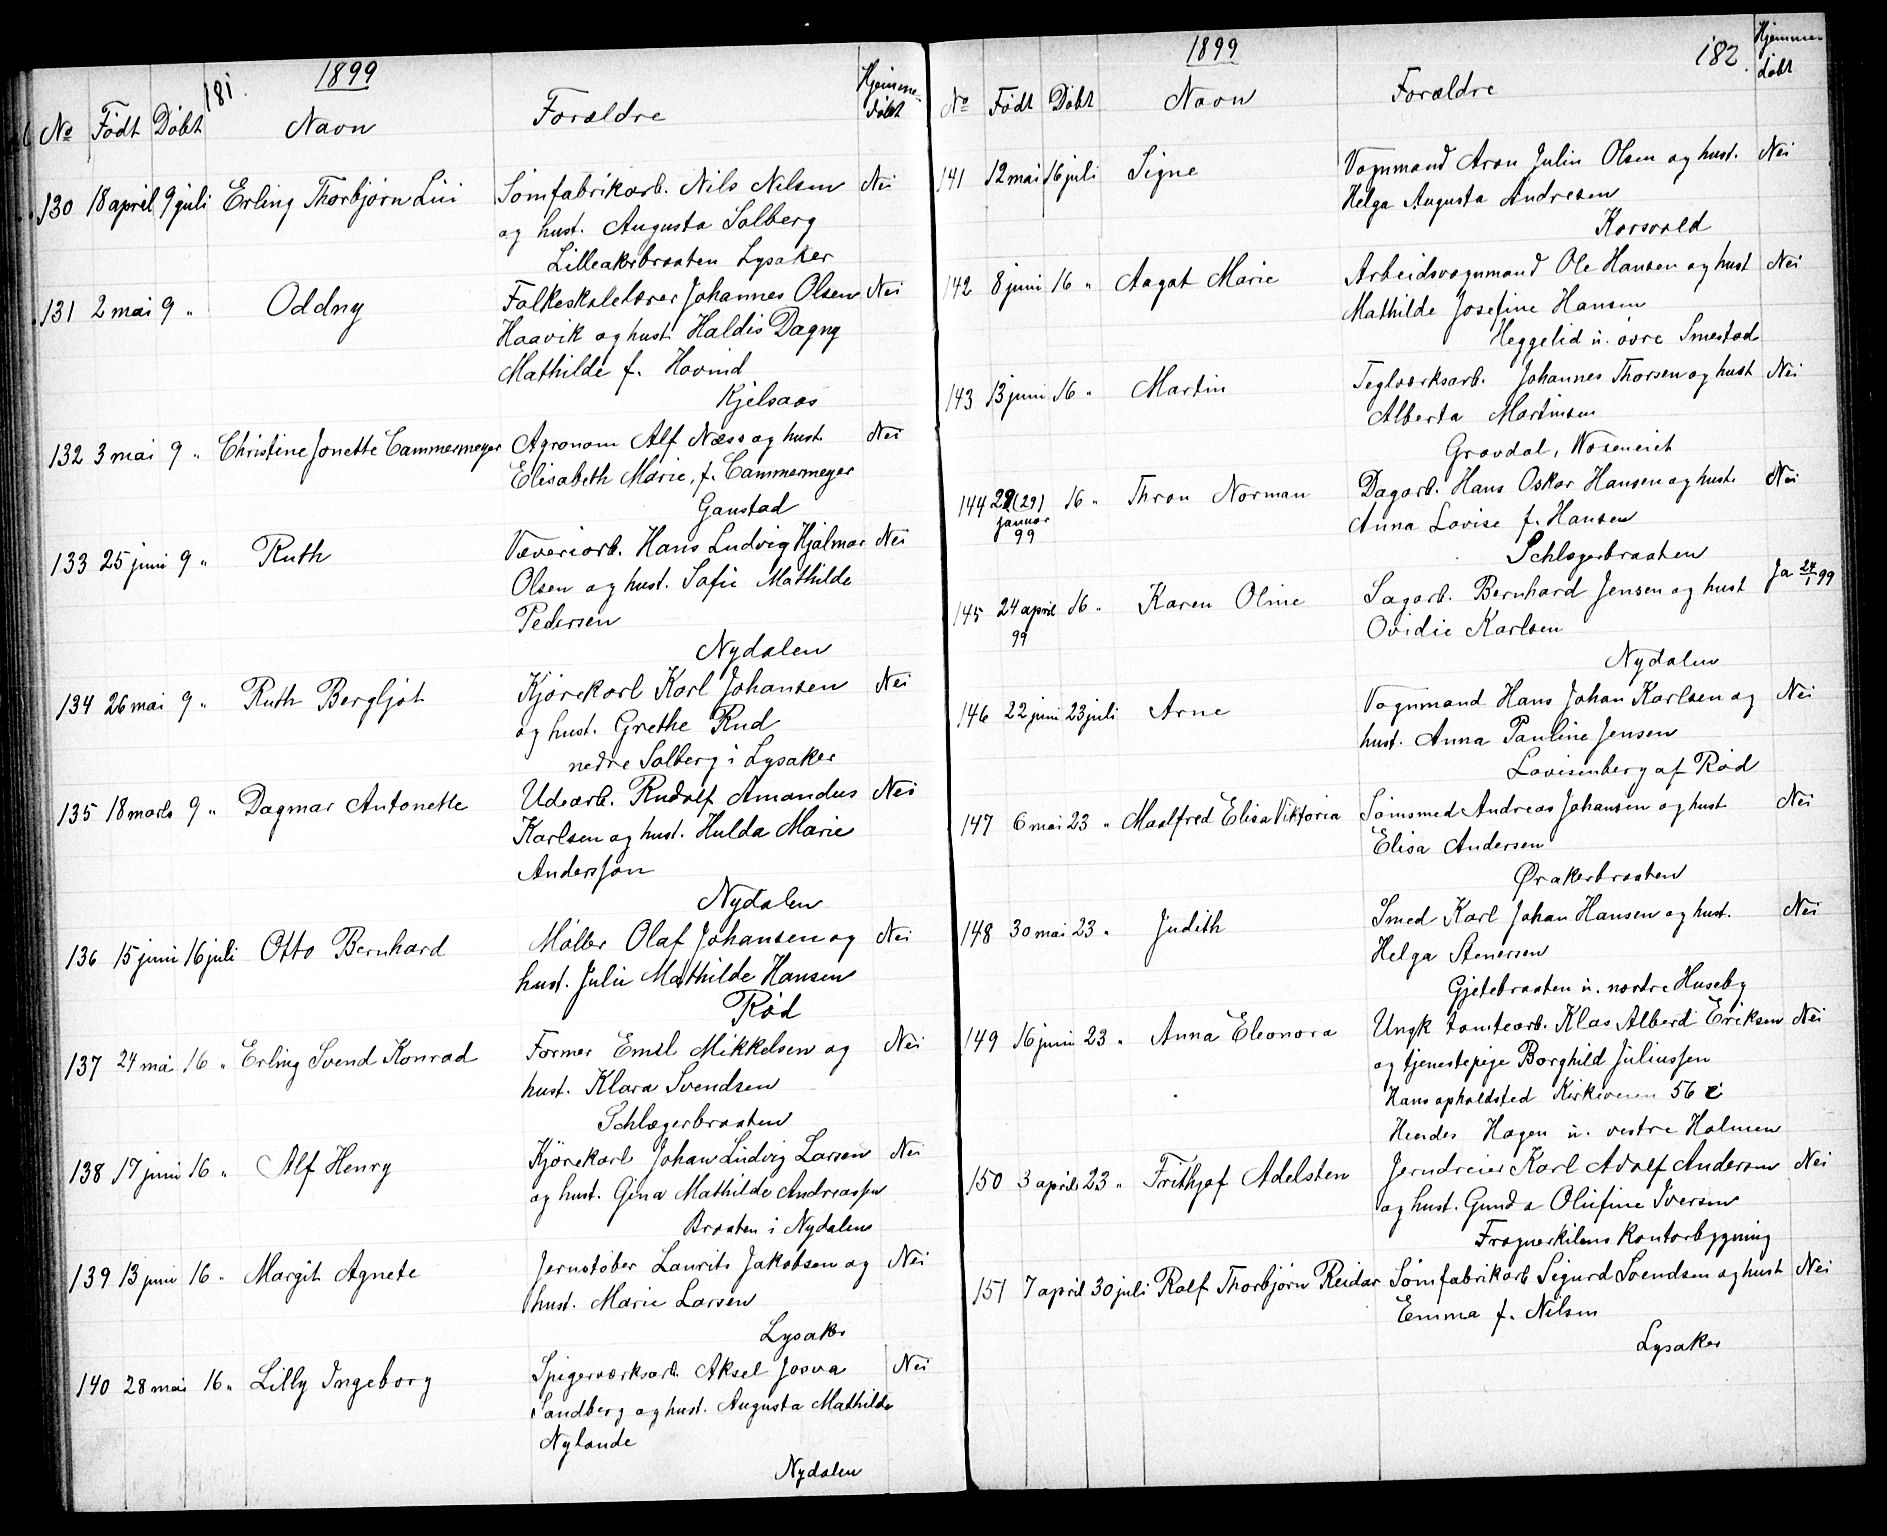 181.
1899
No Født Døbt Navn Forældre Hjemme-døbt
130 18 april 9 juli Erling Thorbjørn Lüi Sømfabrikarb. Nils Nilsen Nei
og hust. Augusta Solberg
Lilleakerbraaten Lysaker
131 2 mai 9 " Oddny Folkeskolelærer Johannes Olsen Nei
Haavik og hust. Haldis Dagny
Mathilde f. Hovind
Kjelsaas
132 3 mai 9 " Christine Jonette Cammermeyer Agronom Alf Næss og hust. Nei
Elisabeth Marie, f. Cammermeyer
Gaustad
133 25 juni 9 " Ruth Væveriarb. Hans Ludvig Hjalmar Nei
Olsen og hust. Sofie Mathilde
Pedersen
Nydalen
134 26 mai 9 " Ruth Bergljot Kjørekarl Karl Johansen Nei
og hust. Grethe Rud
nedre Solberg i Lysaker
135 18 marts 9 " Dagmar Antonette Udearb. Rudolf Amandus Nei
Karlsen og hust. Hulda Marie
Andersson
Nydalen
136 15 juni 16 juli Otto Bernhard Møller Olaf Johansen og Nei
hust. Julie Mathilde Hansen
Rød
137 24 mai 16 " Erling Svend Konrad Former Emil Mikkelsen og Nei
hust. Klara Svendsen
Schlægerbraaten
138 17 juni 16 " Alf Henry Kjørekarl Johan Ludvig Larsen Nei
og hust. Gina Mathilde Andreassen
Braaten i Nydalen
139 13 juni 16 " Margit Agnete Jernstøber Laurits Jakobsen og Nei
hust. Marie Larsen
Lysaker
140 28 mai 16 " Lilly Ingeborg Spigerværksarb. Aksel Josva Nei
Sandberg og hust. Augusta Mathilde
Nylande
Nydalen
1899
182.
No Født Døbt Navn Forældre Hjemme-døbt
141 12 mai 16 juli Signe Vognmand Aron Julin Olsen og hust. Nei
Helga Augusta Andresen
Korsvold
142 8 juni 16 " Aagot Marie Arbeidsvognmand Ole Hansen og hust Nei
Mathilde Josefine Hansen
Heggelid u. øvre Smestad
143 13 juni 16 " Martin Teglværksarb. Johannes Thorsen og hust Nei
Alberta Martinsen
Gravdal,
144 (29) 16 " Thron Norman Dagarb. Hans Oskar Hansen og hust. Nei
januar
99
Anna Lovise f. Hansen
Schlægerbraaten
145 24 april 16 " Karen Oline Sagarb. Bernhard Jensen og hust Ja 24/1 99
99
Ovidie Karlsen
Nydalen
146 22 juni 23 juli Arne Vognmand Hans Johan Karlsen og Nei
hust. Anna Pauline Jensen
Lovisenberg af Rød
147 6 mai 23 " Maalfred Elisa Viktoria Sømsmed Andreas Johansen og hust Nei
Elisa Andersen
Ørakerbraaten
148 30 mai 23 " Judith Smed Karl Johan Hansen og hust. Nei
Helga Stenersen
Gjetebraaten u. nordre Huseby
149 16 juni 23 " Anna Eleonora Ungk tomtearb. Klas Alberd Eriksen Nei
og tjenestepige Borghild Juliussen
Hans opholdsted Kirkeveien 56 c
Hendes Hagen u. vestre Holmen
150 3 april 23 " Frithjof Adelsten Jerndreier Karl Adolf Andersen Nei
og hust. Gunda Olufine Iversen
Frognerkilens Kontorbygning
151 7 april 30 juli Ralf Thorbjørn Reidar Sømfabrikarb Sigurd Svendsen og hust Nei
Emma f. Nilsen
Lysaker